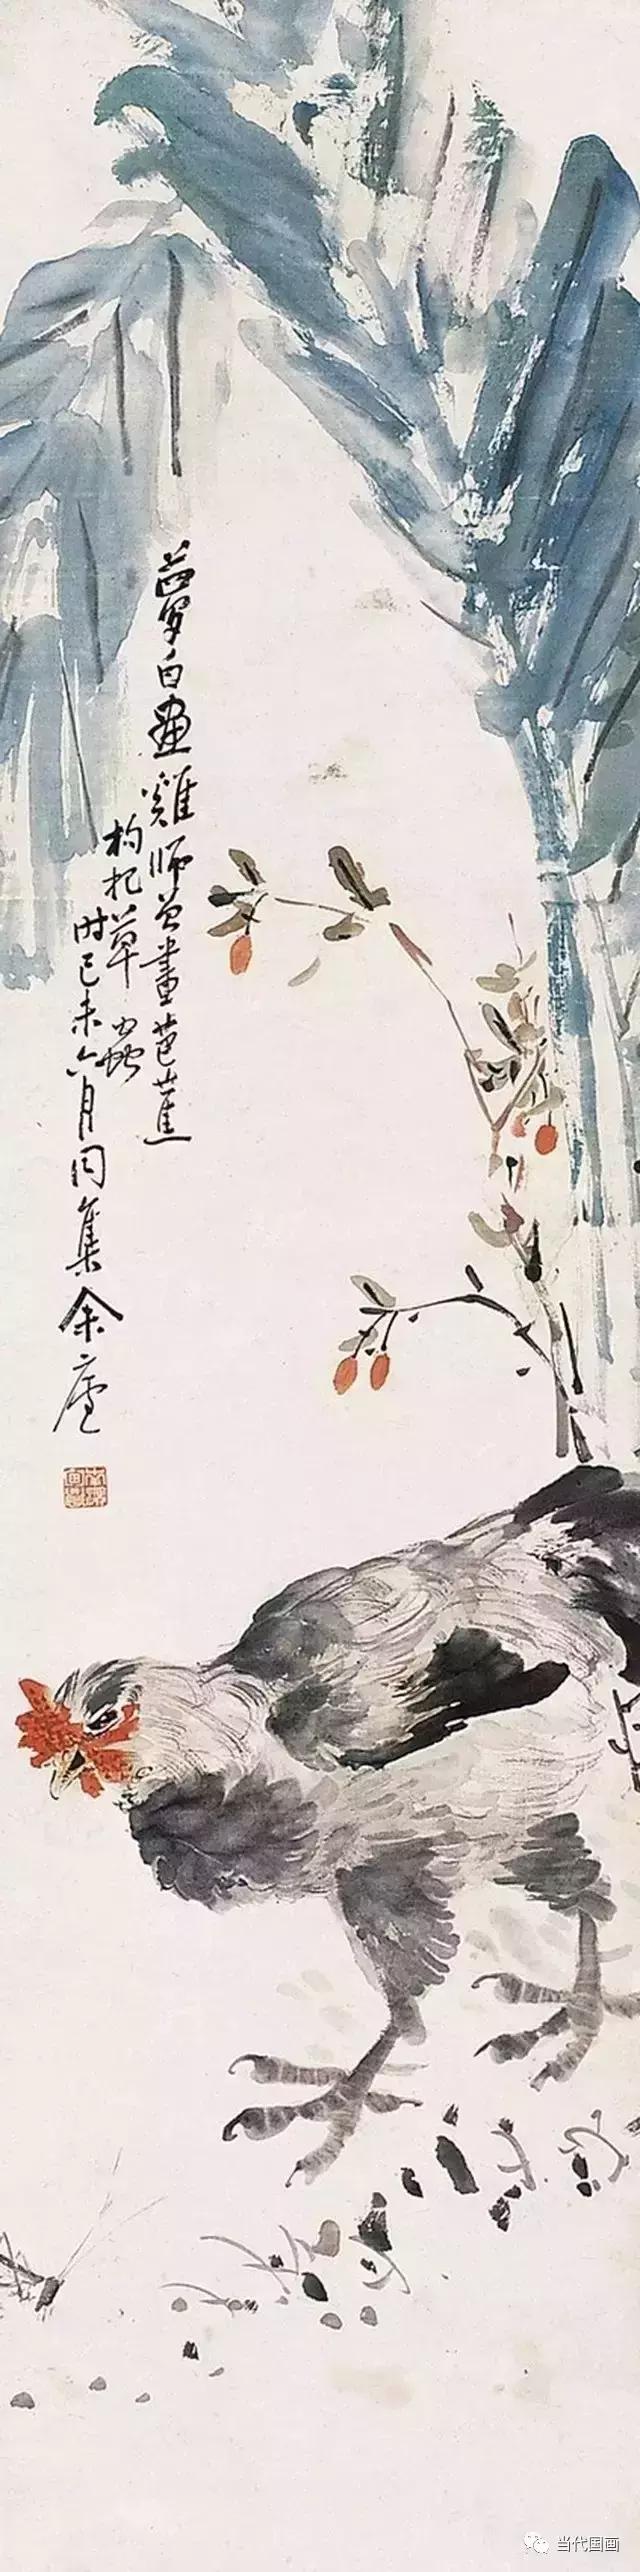 夢白畫雞師曾畫芭蕉
枸杞草蟲
时己未六月同集余廬
当代国画